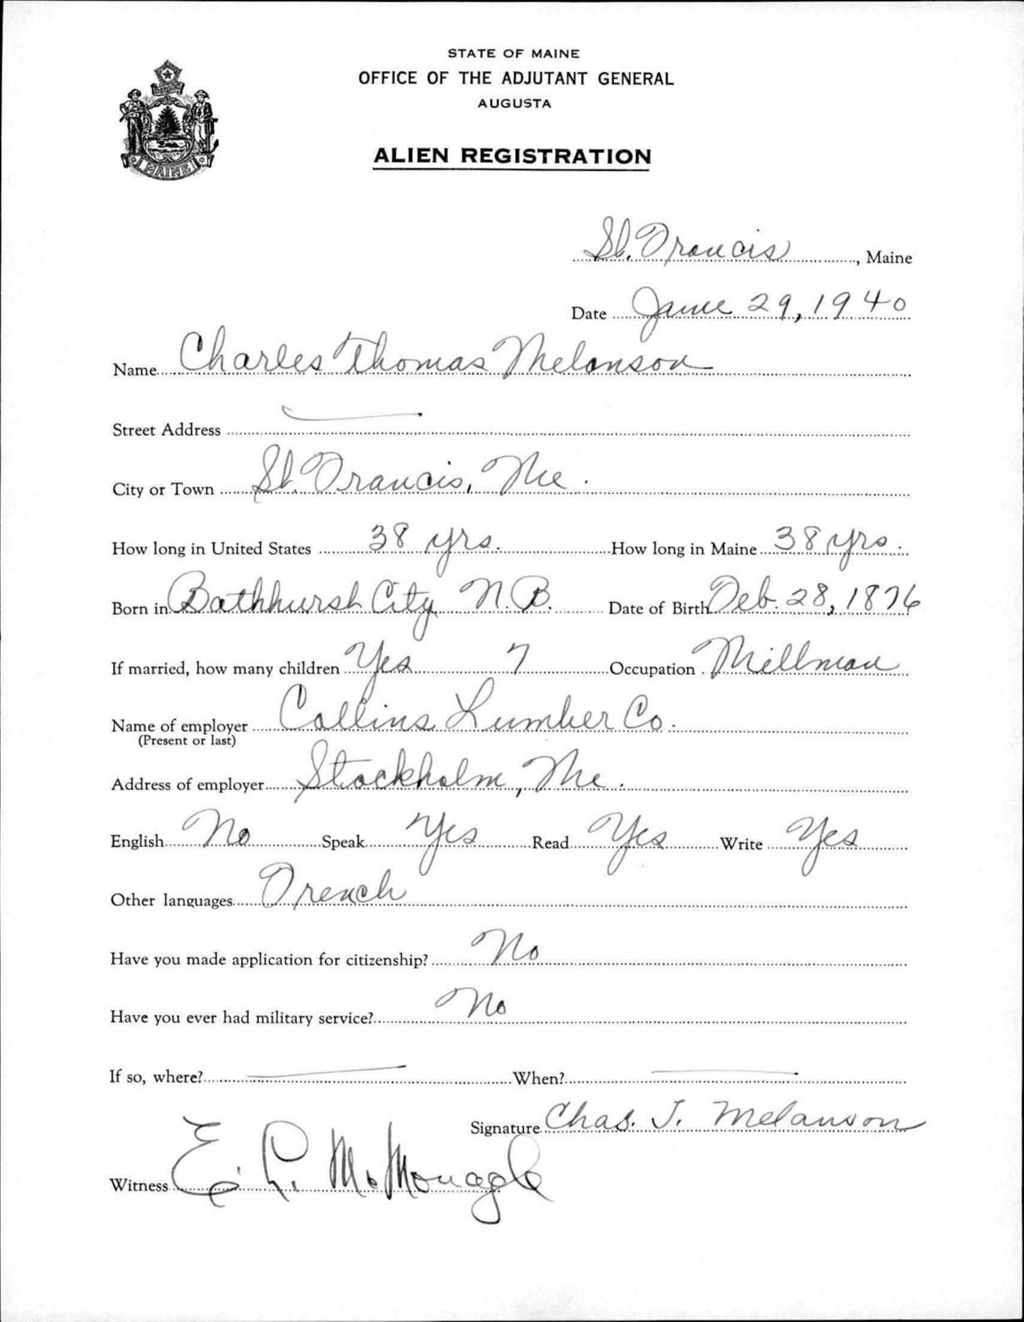 STATE OF MAINE
OFFICE OF THE ADJUTANT GENERAL
AUGUSTA
ALIEN REGISTRATION
MAINE
St. Francis, Maine
Date June 29, 1940
Name Charles Thomas Melanson
Street Address
City or Town St. Francis, Me.
How long in United States 38 yrs. How long in Maine 38 yrs.
Born in Bathhurst City N.B. Date of Birth Feb. 28, 1876
If married, how many children Yes 7 Occupation Millman
Name of employer Collins Lumber Co.
(Present or last)
Address of employer Stockholm, Me.
English No Speak Yes Read Yes Write Yes
Other languages French
Have you made application for citizenship? No
Have you ever had military service? No
If so, where? When?
Signature Chas. T. Melanson
Witness E. R. McMonagle